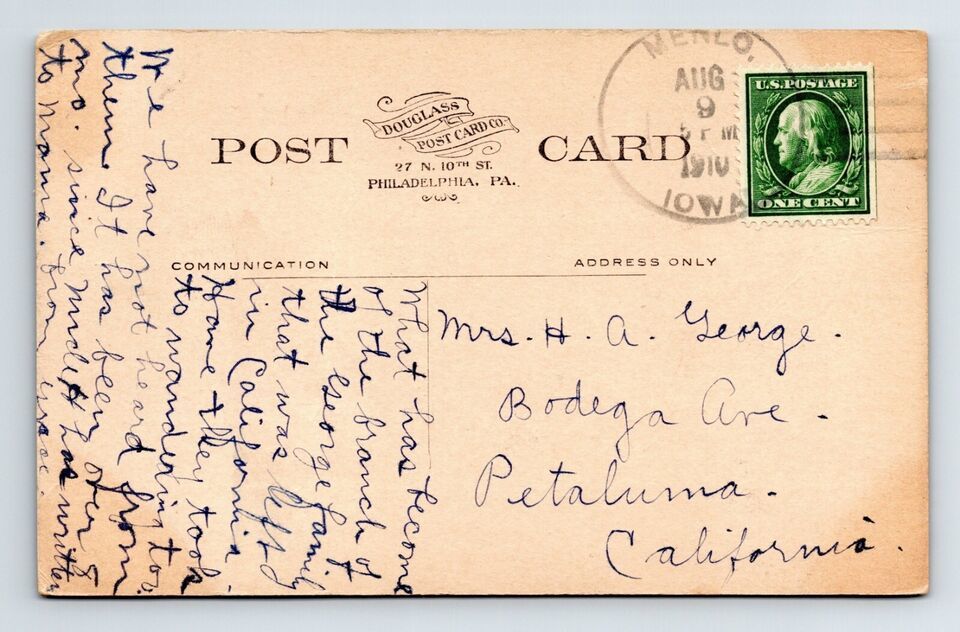 POST CARD
DOUGLASS
POST CARD CO.
27 N. 10TH ST.
PHILADELPHIA, PA.
MENLO,
AUG
9
5 PM
1910
IOWA
U.S. POSTAGE
ONE CENT
COMMUNICATION
ADDRESS ONLY
What has become
of the branch of
the George family
that was left
in California.
Have they took
to wandering too.
We have not heard from
them It has been over 8
mo. since he has written
to Mama. from
Mrs. H. A. George.
Bodega Ave.
Petaluma.
California.